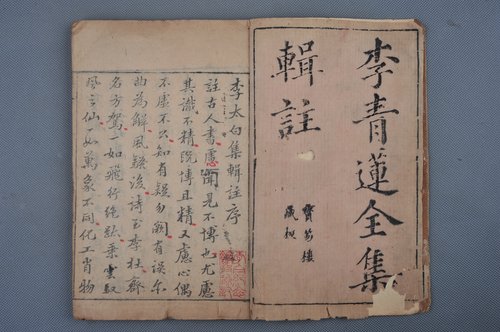 李青蓮全集
輯註
寶笏樓
藏板
李太白集輯註序
註古人書慮聞見不博也尤慮
其識不精既博且精又慮心偶
不虛不只知有疑勿闕有誤尔
曲為解風疑後詩至李杜齊
名方駕一如飛行絕跡乘雲馭
風之仙一如萬象不同化工肖物